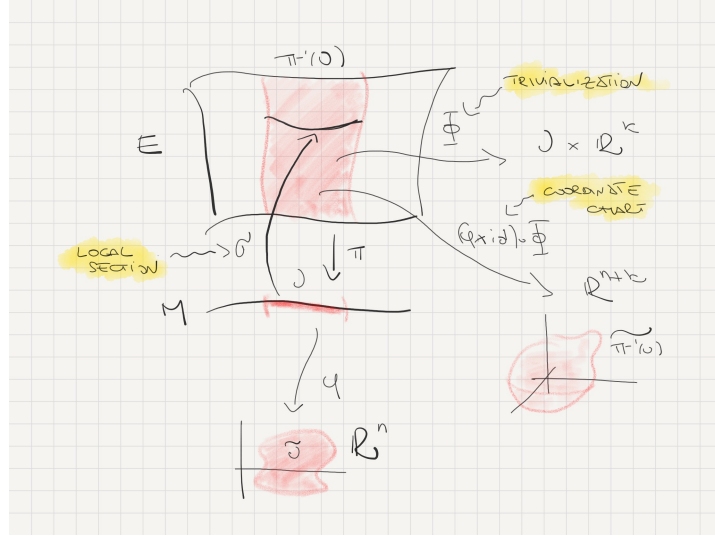 π⁻¹(U)
TRIVIALIZATION
E
Φ
U × ℝᵏ
COORDINATE
CHART
(φ×id)∘Φ
LOCAL
SECTION
σ
π
U
ℝⁿ⁺ᵏ
M
π⁻¹(U)
φ
Ũ
ℝⁿ